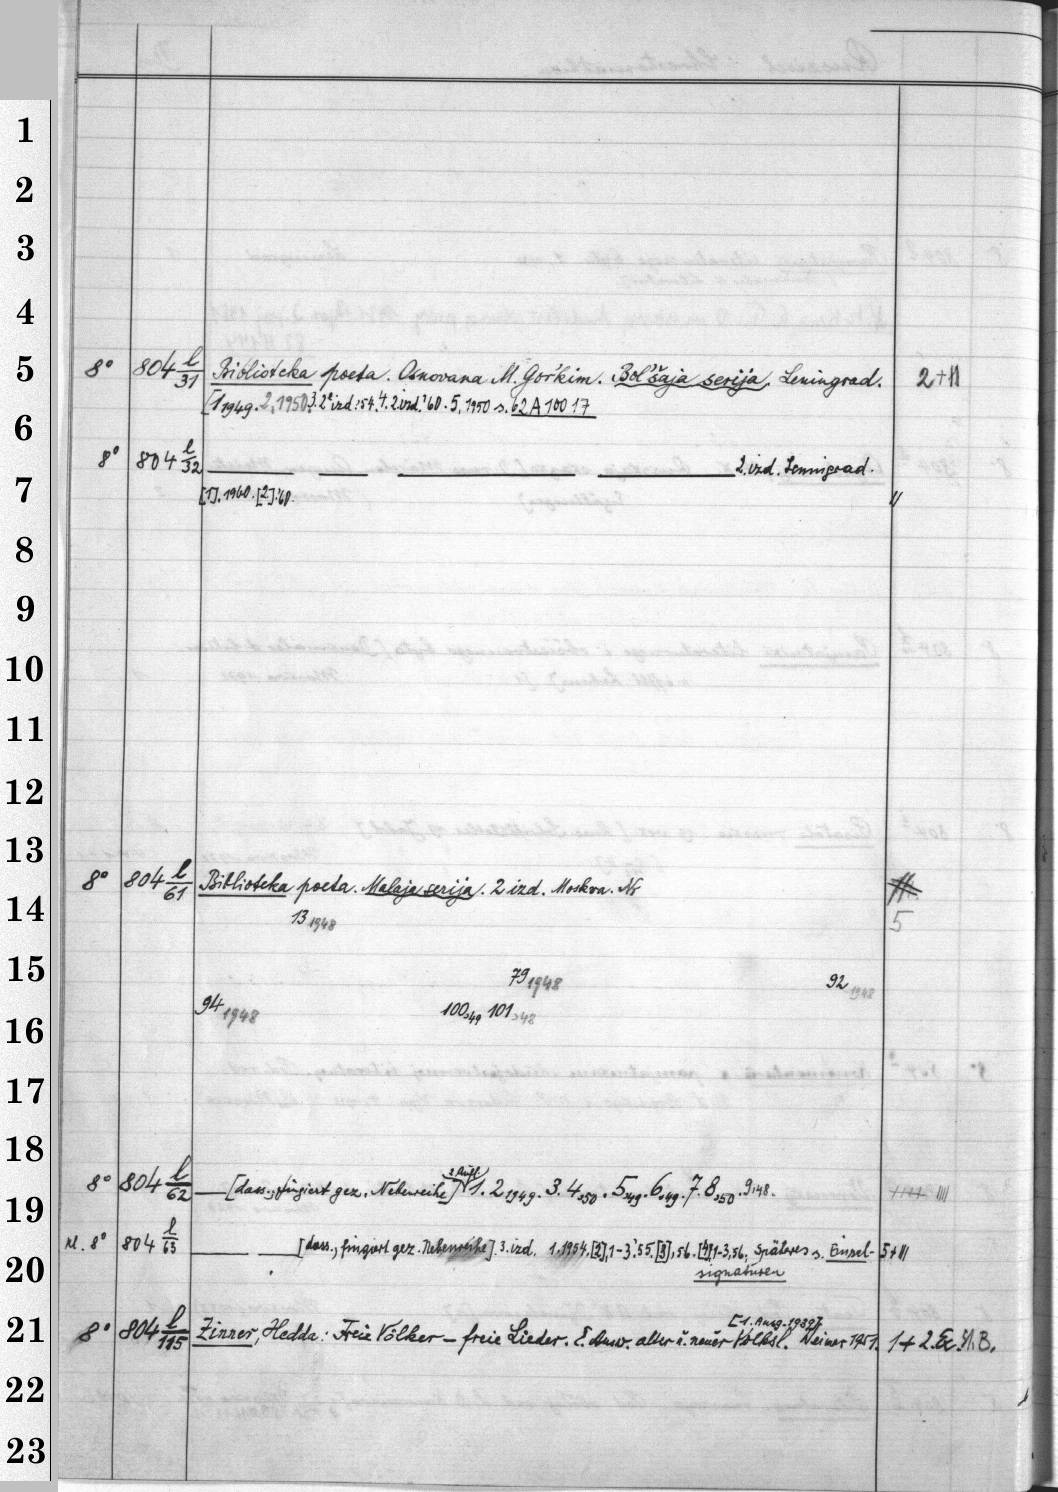 1
2
3
4
5
8° 804 l/31 Biblioteka poeta. Osnovana M. Gor'kim. Bol'šaja serija. Leningrad. 2+II
[1 1949. 2, 1950. 3. 2e izd.: 54. 4. 2. izd.' 60. 5, 1950 s. 62 A 100 17
6
8° 804 l/32 2. izd. Leningrad.
7
[1]. 1960. [2]:'60. "
8
9
10
11
12
13
8° 804 l/61 Biblioteka poeta. Malaja serija. 2 izd. Moskva. Nr
14
13 1948 5
15
79 1948 92 1948
94 1948 100,49 101,48
16
17
18
2. Aufl.
8° 804 l/62 [dass., fingiert gez. Nebenreihe] 1. 2 1949. 3. 4,50. 5,49. 6,49. 7. 8,50. 9,48. IIII
19
kl. 8° 804 l/63 [dass., fingiert gez. Nebenreihe]. 3. izd. 1. 1954. [2],1-3,'55. [3],56. [4]1-3,56. Späteres s. Einzel- 5+III
20
signaturen
[1. Ausg. 1939?]
21
8° 804 l/115 Zinner, Hedda: Freie Völker – freie Lieder. E. Ausw. alter u. neuer Volksl. Weimar 1951. 1 + 2. Ex. N.B.
22
23